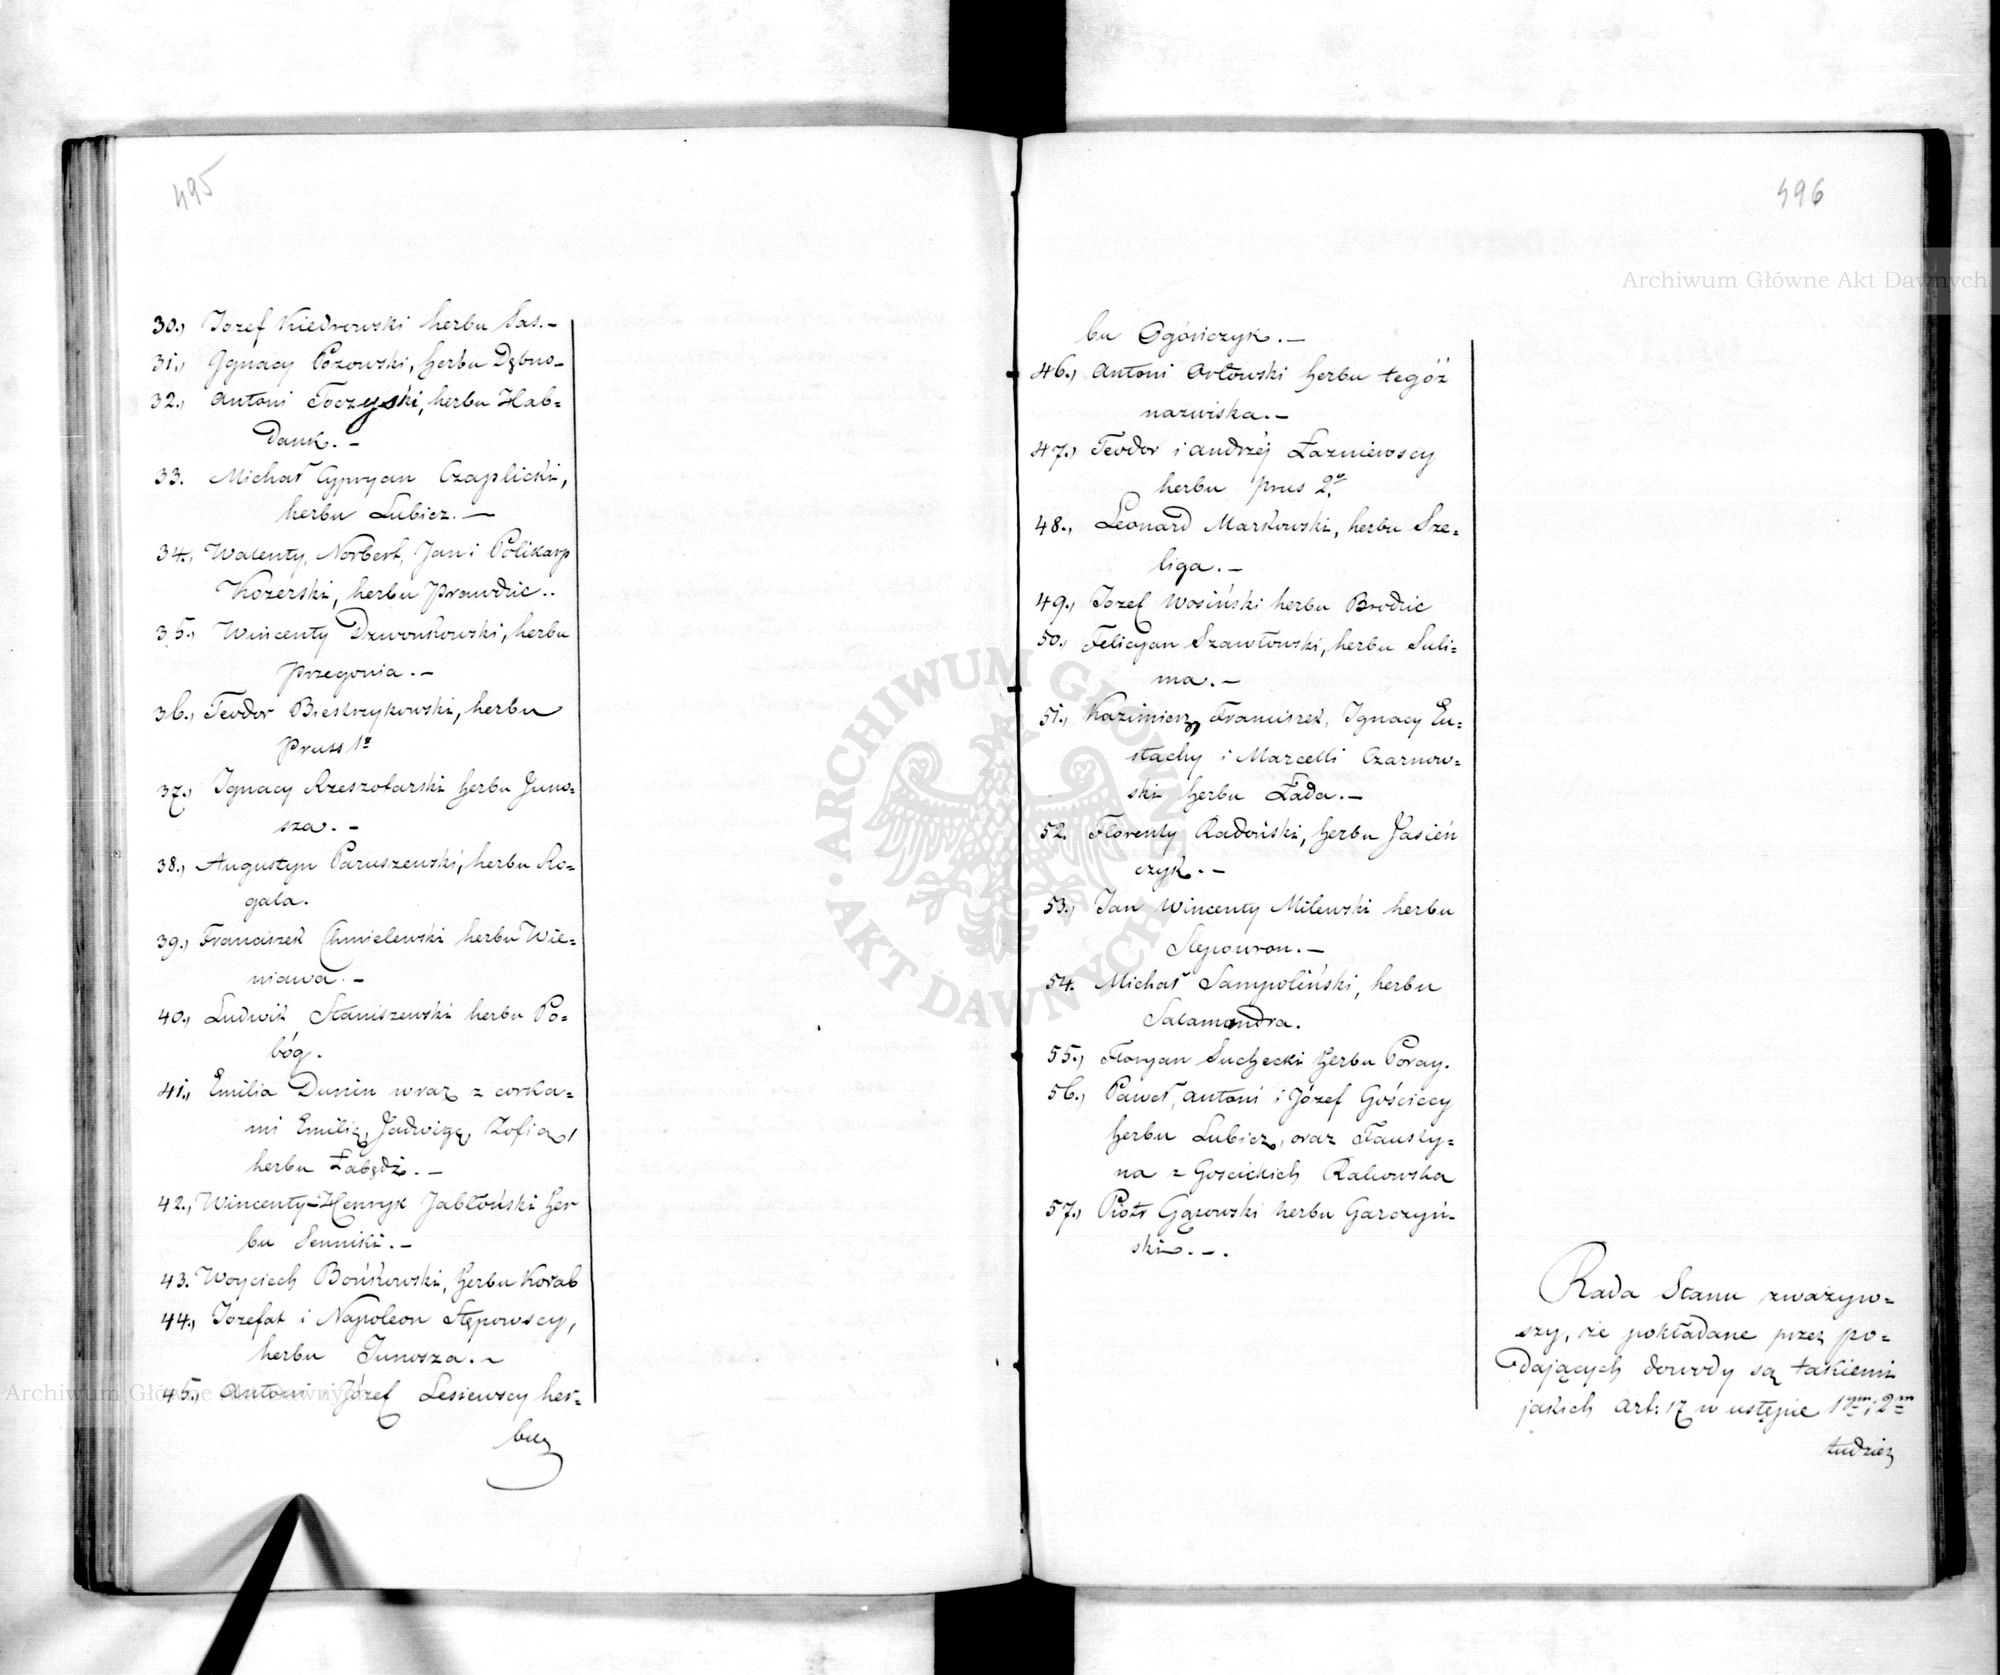 495
30., Jozef Kiedrowski herbu Sas.–
31., Ignacy Pozowski, herbu Dębno–
32., Antoni Toczyski, herbu Hab=
dank.–
33. Michał Cypryan Czaplicki,
herbu Lubicz.–
34., Walenty, Norbert, Jan i Polikarp
Kozerski, herbu Prawdzic..
35., Wincenty Dzwonkowski, herbu
Przegonia.–
36., Teodor Biestrzykowski, herbu
Pruss 1º
37., Ignacy Rzeszotarski herbu Juno=
sza.–
38., Augustyn Paruszewski, herbu Ro=
gala.
39., Franciszek Chmielewski herbu Wie=
niawa.–
40., Ludwik Staniszewski herbu Po=
bóg.
41., Emilia Dunin wraz z corka=
mi Emilią, Jadwigą, Zofią,
herbu Łabędź.–
42., Wincenty–Henryk Jabłoński her
bu
43. Woyciech Bońkowski, herbu Korab
44., Jozefat i Napoleon Stępowscy,
herbu Junosza.–
45., Antoni i Józef Lesiewscy her=
bu
496
bu Ogończyk.–
46., Antoni Orłowski herbu tegoż
nazwiska.–
47., Teodor i Andrzéj Łazniewscy
herbu prus 2º
48., Leonard Markowski, herbu Sze=
liga.–
49., Jozef Wosiński herbu Brodzic
50., Felicyan Szawłowski, herbu Suli=
ma.–
51., Kazimierz, Franciszek, Ignacy Eu=
stachy i Marcelli Czarnow=
ski herbu Łada.–
52. Florenty Radoński, herbu Jasień
czyk.–
53., Jan Wincenty Milewski herbu
Slepowron.–
54. Michał Sampoliński, herbu
Salamandra.
55., Floryan Suchecki herbu Poray.
56., Paweł, Antoni i Józef Gościccy
herbu Lubicz, oraz Fausty=
na z Goscickich Rakowska
57., Piotr Gąsowski herbu Garczyń=
ski.–.
Rada Stanu zważyw=
szy, że pokładane przez po=
dających dowody są takiemi
jakich Art: 17 w ustępie 1ym i 2m
tudzież
Archiwum Główne Akt Dawnych
Archiwum Główne Akt Dawnych
ARCHIWUM GŁÓWNE
AKT DAWNYCH